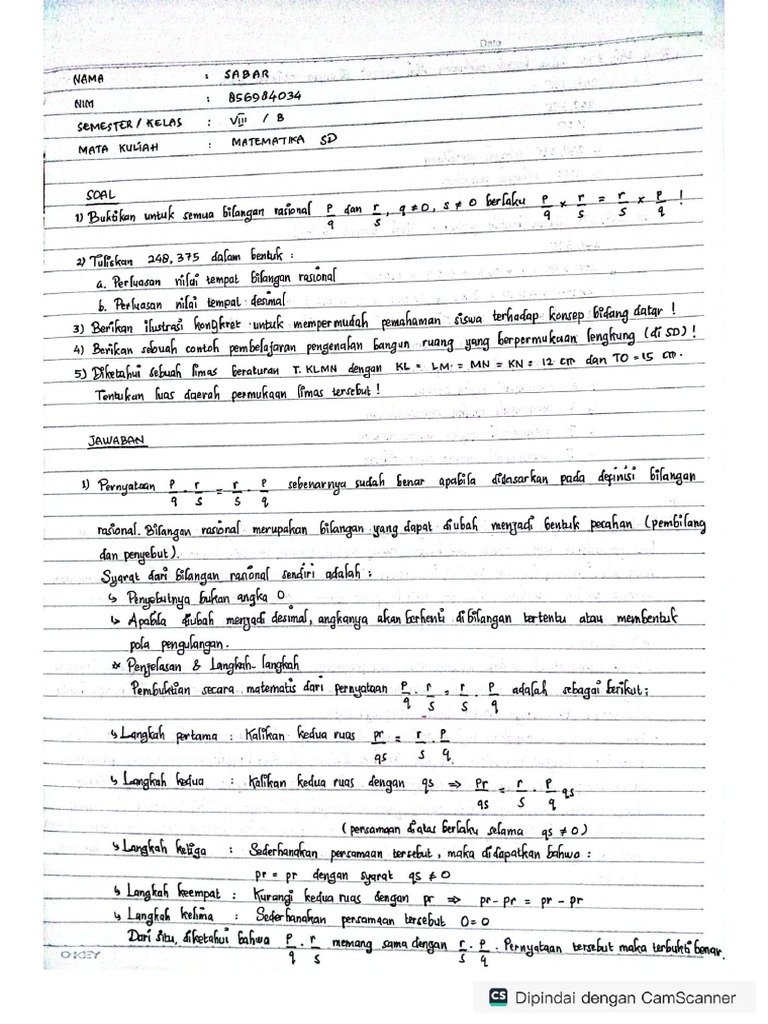 Date
NAMA : SABAR
NIM : 856984034
SEMESTER / KELAS : VIII / B
MATA KULIAH : MATEMATIKA SD
SOAL
1) Buktikan untuk semua bilangan rasional p/q dan r/s, q ≠ 0, s ≠ 0 berlaku p/q × r/s = r/s × p/q !
2) Tuliskan 248,375 dalam bentuk :
a. Perluasan nilai tempat bilangan rasional
b. Perluasan nilai tempat desimal
3) Berikan ilustrasi kongkret untuk mempermudah pemahaman siswa terhadap konsep bidang datar !
4) Berikan sebuah contoh pembelajaran pengenalan bangun ruang yang berpermukaan lengkung (di SD) !
5) Diketahui sebuah limas beraturan T. KLMN dengan KL = LM = MN = KN = 12 cm dan TO = 15 cm.
Tentukan luas daerah permukaan limas tersebut !
JAWABAN
1) Pernyataan p/q . r/s = r/s . p/q sebenarnya sudah benar apabila didasarkan pada definisi bilangan
rasional. Bilangan rasional merupakan bilangan yang dapat diubah menjadi bentuk pecahan (pembilang
dan penyebut).
Syarat dari bilangan rasional sendiri adalah :
↳ Penyebutnya bukan angka 0
↳ Apabila diubah menjadi desimal, angkanya akan berhenti di bilangan tertentu atau membentuk
pola pengulangan.
* Penjelasan & Langkah-langkah
Pembuktian secara matematis dari pernyataan p/q . r/s = r/s . p/q adalah sebagai berikut ;
↳ Langkah pertama : Kalikan kedua ruas pr/qs = r/s . p/q
↳ Langkah kedua : Kalikan kedua ruas dengan qs ⇒ pr/qs = r/s . p/q qs
(persamaan diatas berlaku selama qs ≠ 0)
↳ Langkah ketiga : Sederhanakan persamaan tersebut, maka didapatkan bahwa :
pr = pr dengan syarat qs ≠ 0
↳ Langkah keempat : Kurangi kedua ruas dengan pr ⇒ pr - pr = pr - pr
↳ Langkah kelima : Sederhanakan persamaan tersebut 0 = 0
Dari situ, diketahui bahwa p/q . r/s memang sama dengan r/s . p/q. Pernyataan tersebut maka terbukti benar.
OKEY
CS Dipindai dengan CamScanner